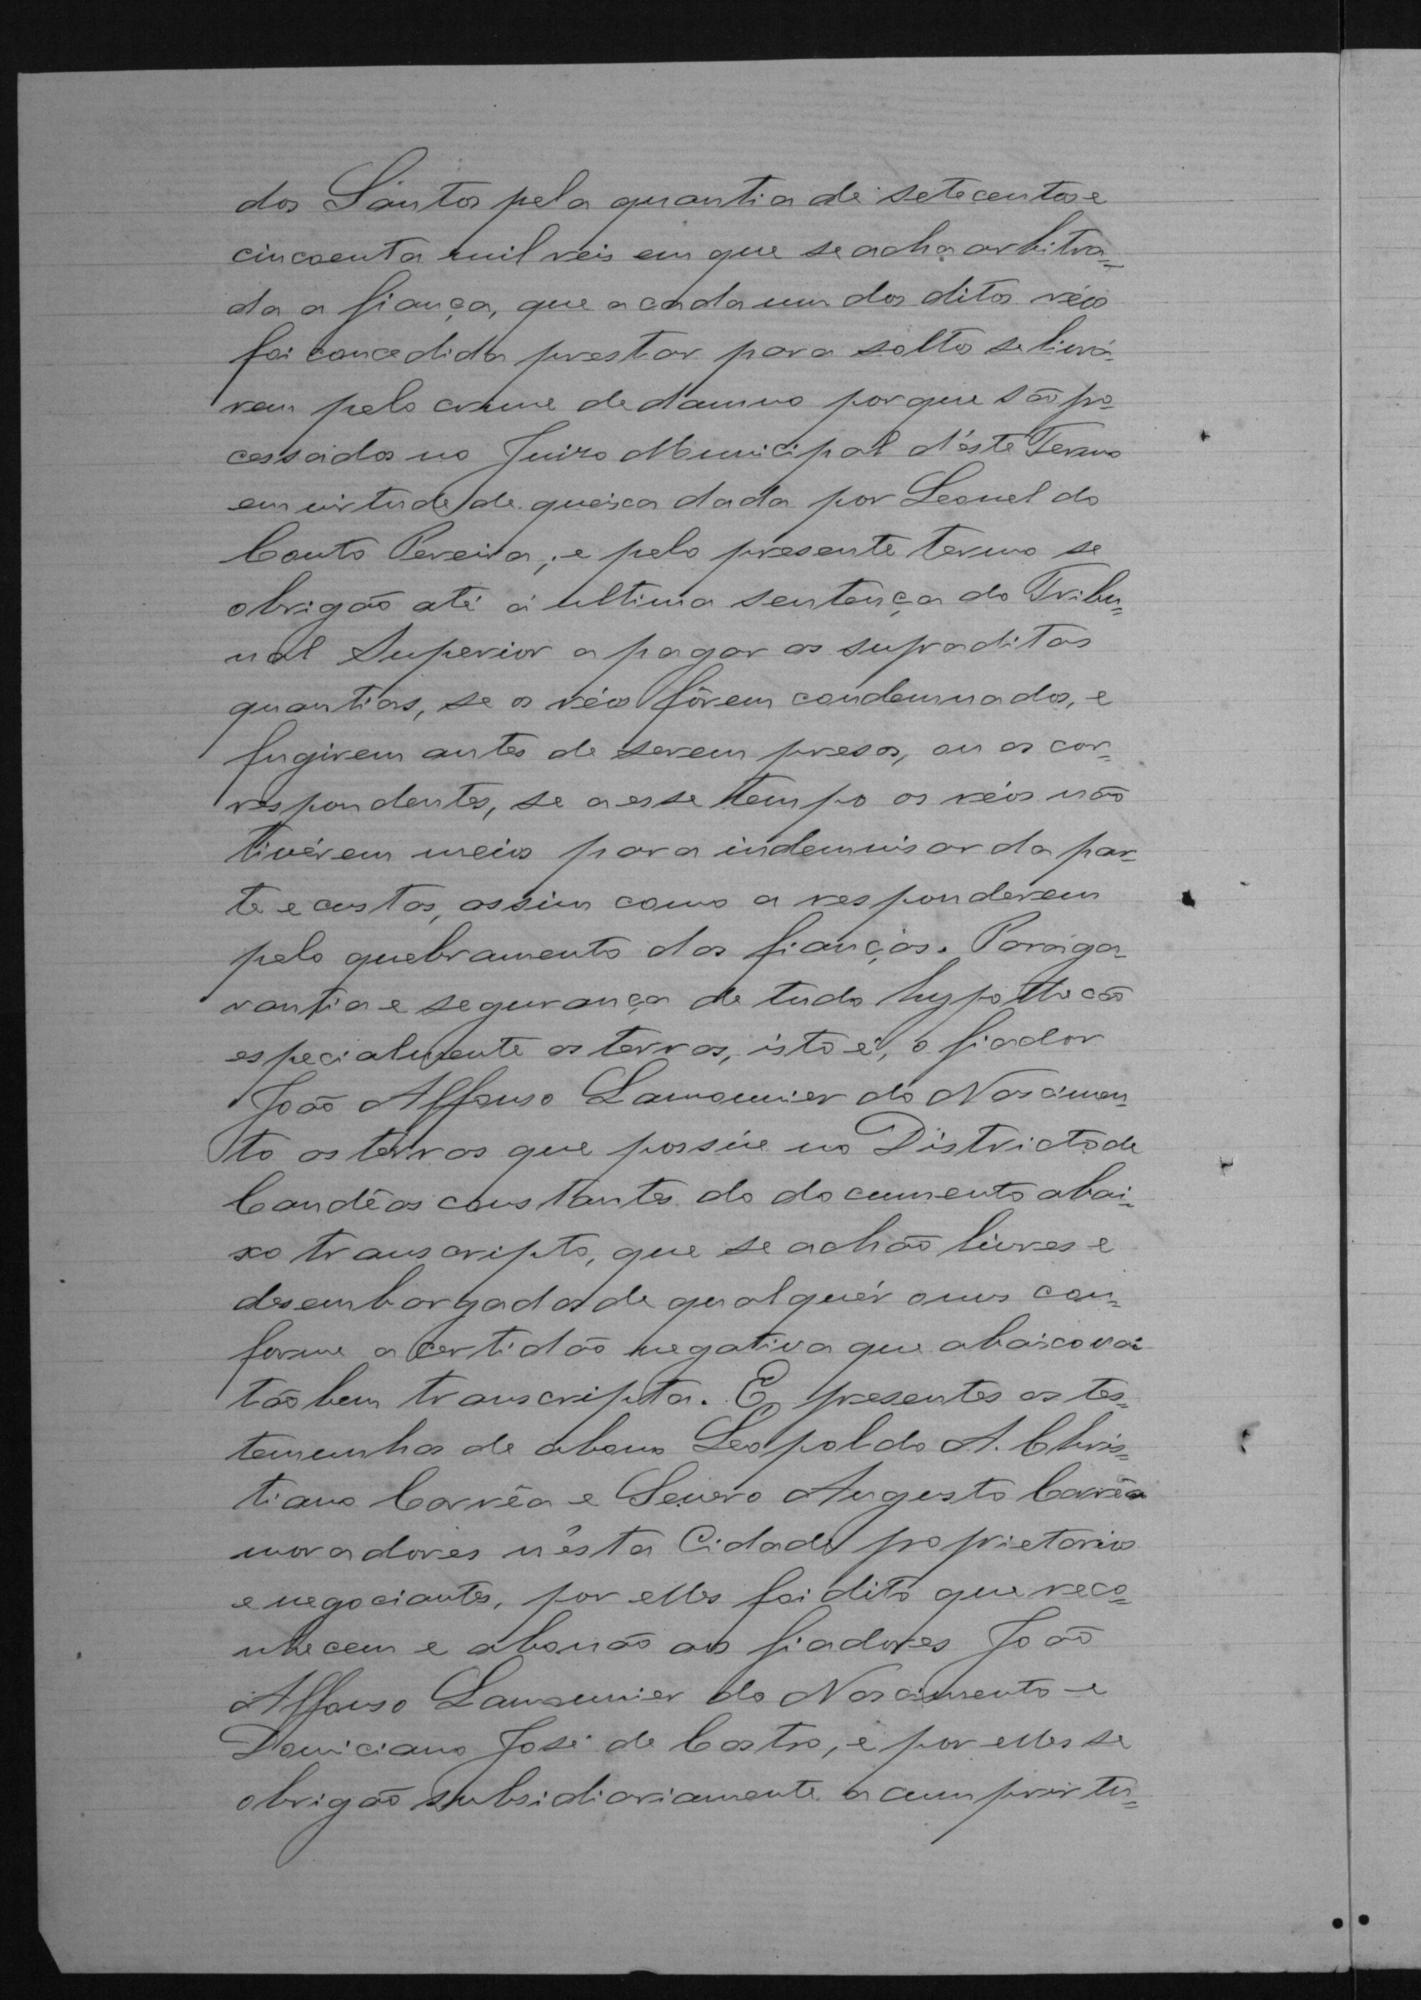 dos Santos pela quantia de setecentos e
cincoenta mil reis em que se acha arbitra=
da a fiança, que a cada um dos ditos réos
foi concedida prestar para solto se livrá-
rem pelo crime de damno porque são pro-
cessados no Juizo Municipal d'éste Termo
em virtude de queixa dada por Leonel do
Couto Pereira; e pelo presente termo se
obrigão até á ultima sentença do Tribu=
nal Superior a pagar as supraditas
quantias, se os réos fôrem condemnados, e
fugirem antes de serem presos, ou as cor=
respondentes, se a esse tempo os réos não
tivérem meios para indemnisar da par-
te e custas, assim como a responderem
pelo quebramento das fianças. Para ga-
rantia e segurança de tudo hypothecão
especialmente as terras, isto é, o fiador
João Affonso Lamounier do Nascimen-
to as terras que possúe no Districto de
Candêas constantes do documento abai-
xo transcripto, que se achão livres e
desembargadas de qualquér onus con=
forme a certidão negativa que abaixo vai
tãobem transcripta. E, presentes as tes=
temunhas de abono Leopoldo A. Chris=
tiano Corrêa e Severo Augusto Corrêa
moradores n'ésta Cidade proprietarios
e negociantes, por elles foi dito que reco=
nhecem e abonão aos fiadores João
Affonso Lamounier do Nascimento e
Domiciano José de Castro, e por elles se
obrigão subsidiariamente a cumprir tu=